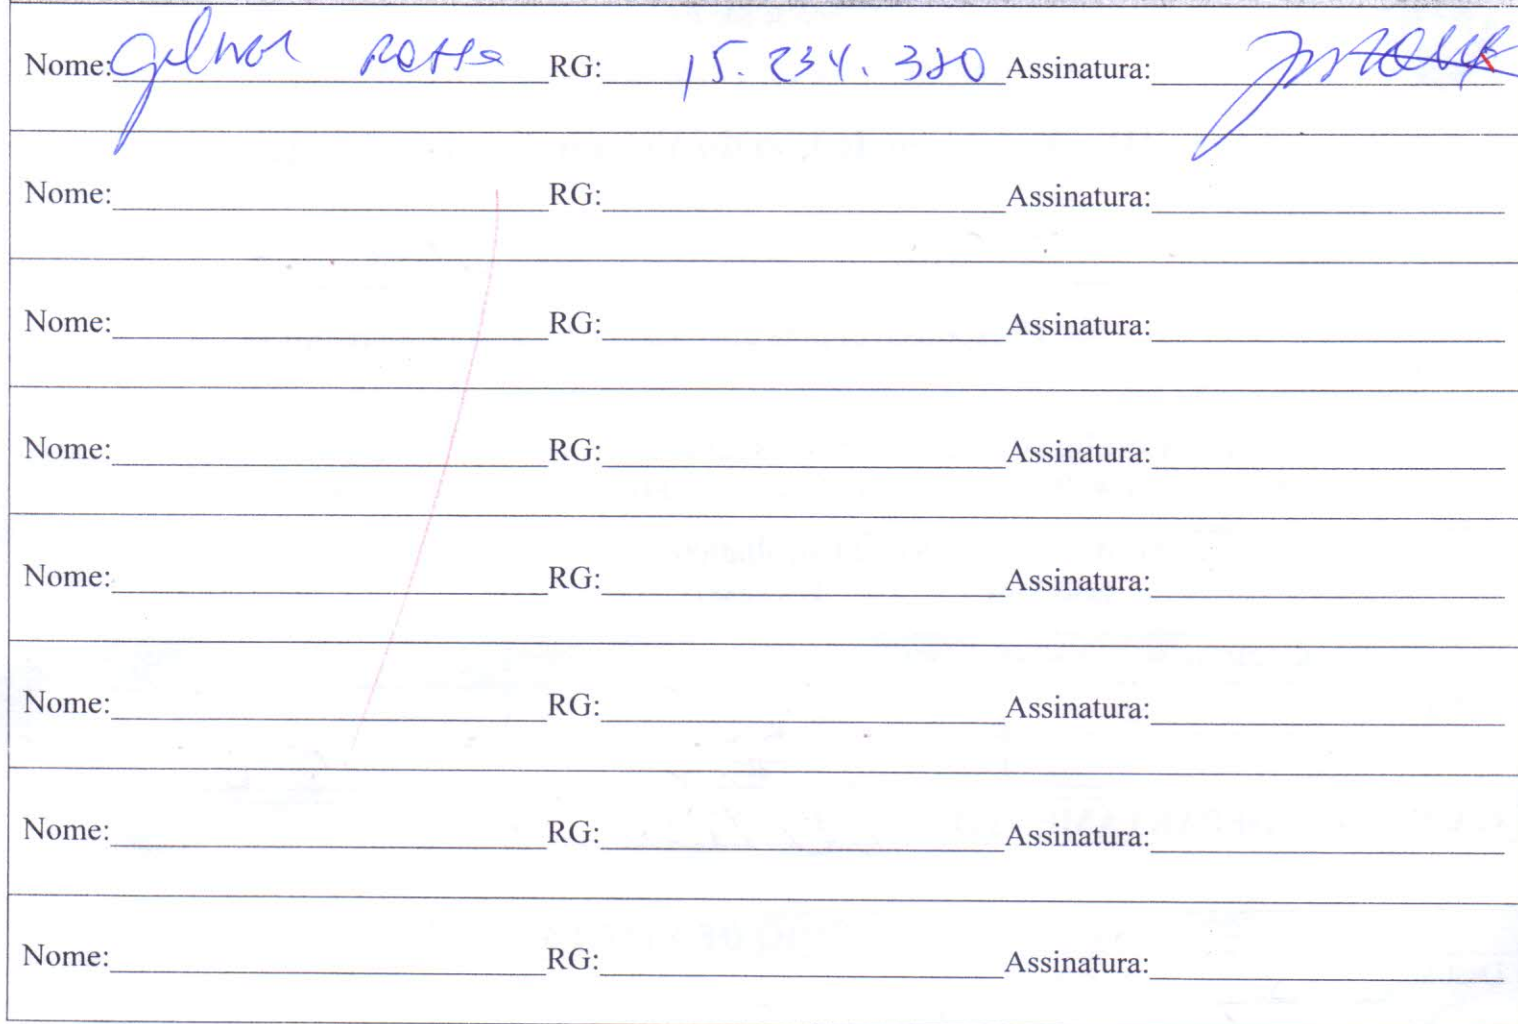 Nome: Gilmar Rotta RG: 15.234.380 Assinatura:
Nome: RG: Assinatura:
Nome: RG: Assinatura:
Nome: RG: Assinatura:
Nome: RG: Assinatura:
Nome: RG: Assinatura:
Nome: RG: Assinatura:
Nome: RG: Assinatura: